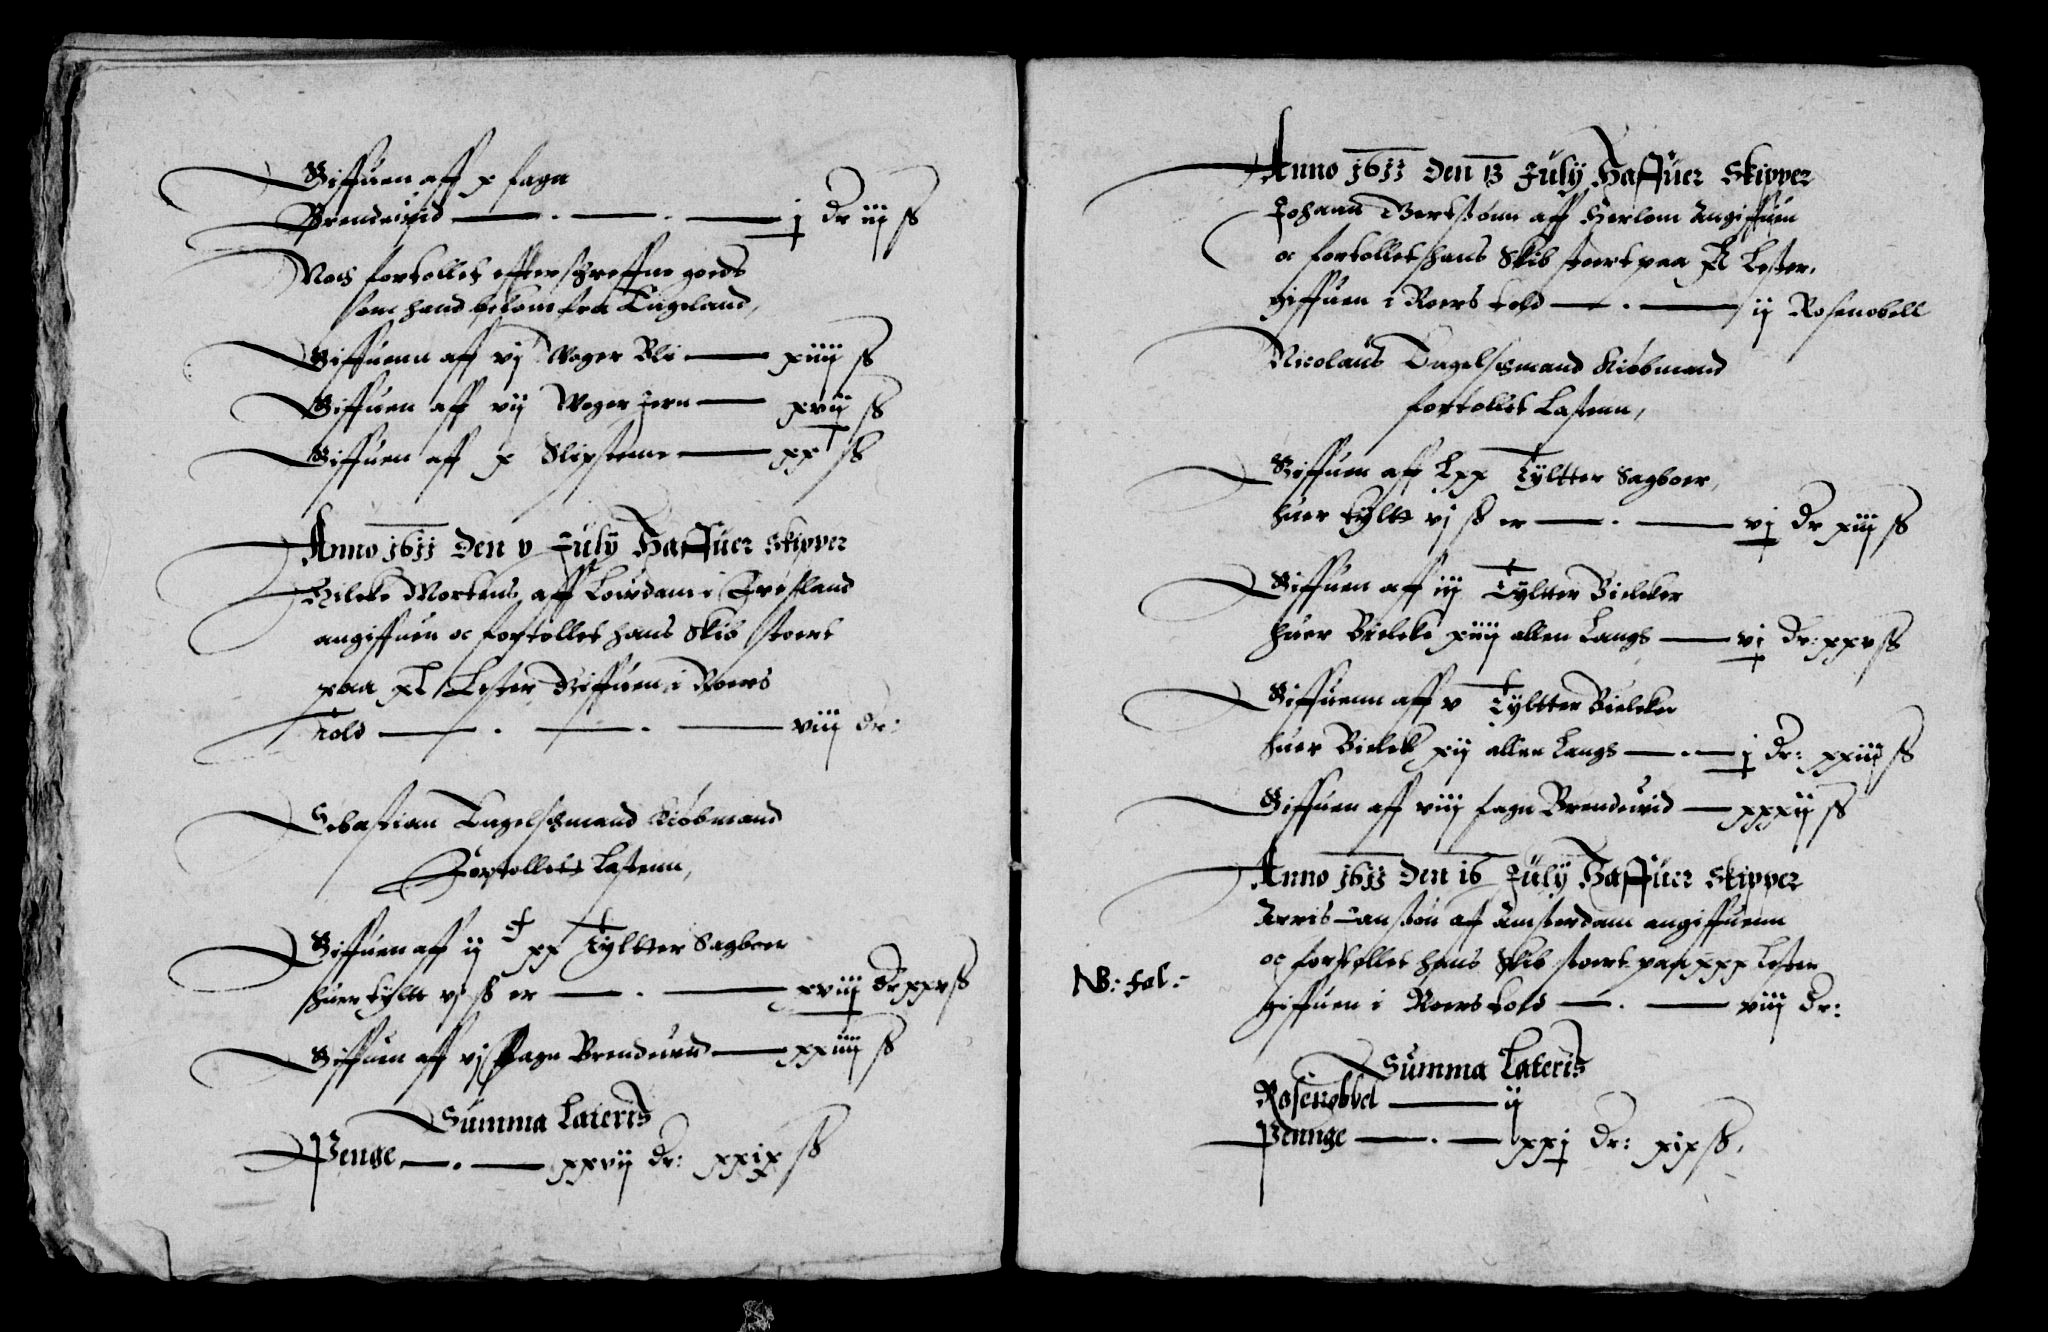 Giffuen aff x fagn
Brendeuid — . — . — j Dr iij ß
Noch fortollet effterschreffne goeds
som hand bekom fra Engeland,
Giffuenn aff vj Woger Bli — xiiij ß
Giffuen aff vij Woger Jern — xvij ß
Giffuen aff x Slipsteene — xx ß
Anno 1611 Den v July Haffuer Skipper
Hilcke Mortens aff Loirdam i Fresland
angiffuen oc fortollet hans Skib stoert
paa xL Lester Giffuen i Roers
Told — . — . — viij Dr:
Sebastian Engelschmand Kiøbmand
Fortollet Lastenn,
Giffuen aff ij c xx Tyltter Sagboer
huer tylt vj ß er — . — xviij Dr xxv ß
Giffuen aff vj fagn Brendeued — xxiiij ß
Summa Lateris
Penge — . — xxvij Dr: xxix ß
Anno 1611 Den 13 July Haffuer Skipper
Johann Bertßønn aff Herlom Angiffuen
oc fortollet hans Skib stoert paa Lester,
giffuen i Roers told — . — ij Rosenobell
Nicolaus Engelschmand Kiøbmand
fortollet Lastenn,
Giffuen aff Lxx Tyltter Sagboer,
huer tylt vj ß er — . — vj Dr xiij ß
Giffuen aff iij Tyltter Bielcker
huer Bielcke xiiij allen Langs — vj Dr: xxv ß
Giffuenn aff v Tyltter Bielcker
huer Bielck xij allen Langs — . — j Dr: xxiiij ß
Giffuen aff viij fagn Brendeuid — xxxij ß
Anno 1611 Den 16 July Haffuer Skipper
Arris Janßøn aff Amsterdam angiffuenn
oc fortollet hans Skib stoert paa xxx Lester
NB: fal:
giffuen i Roers told — . — viij Dr:
Summa Lateris
Rosenobbel — ij
Pennge — . — xxj Dr: xix ß.